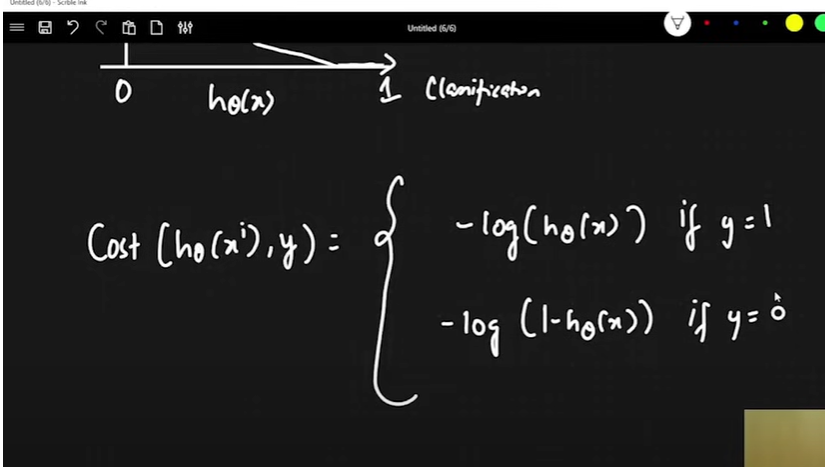 Untitled (6/6) - Scrble Ink
Untitled (6/6)
0 hθ(x) 1 Classification
Cost (hθ(xⁱ), y) = { -log(hθ(x)) if y = 1
-log (1-hθ(x)) if y = 0